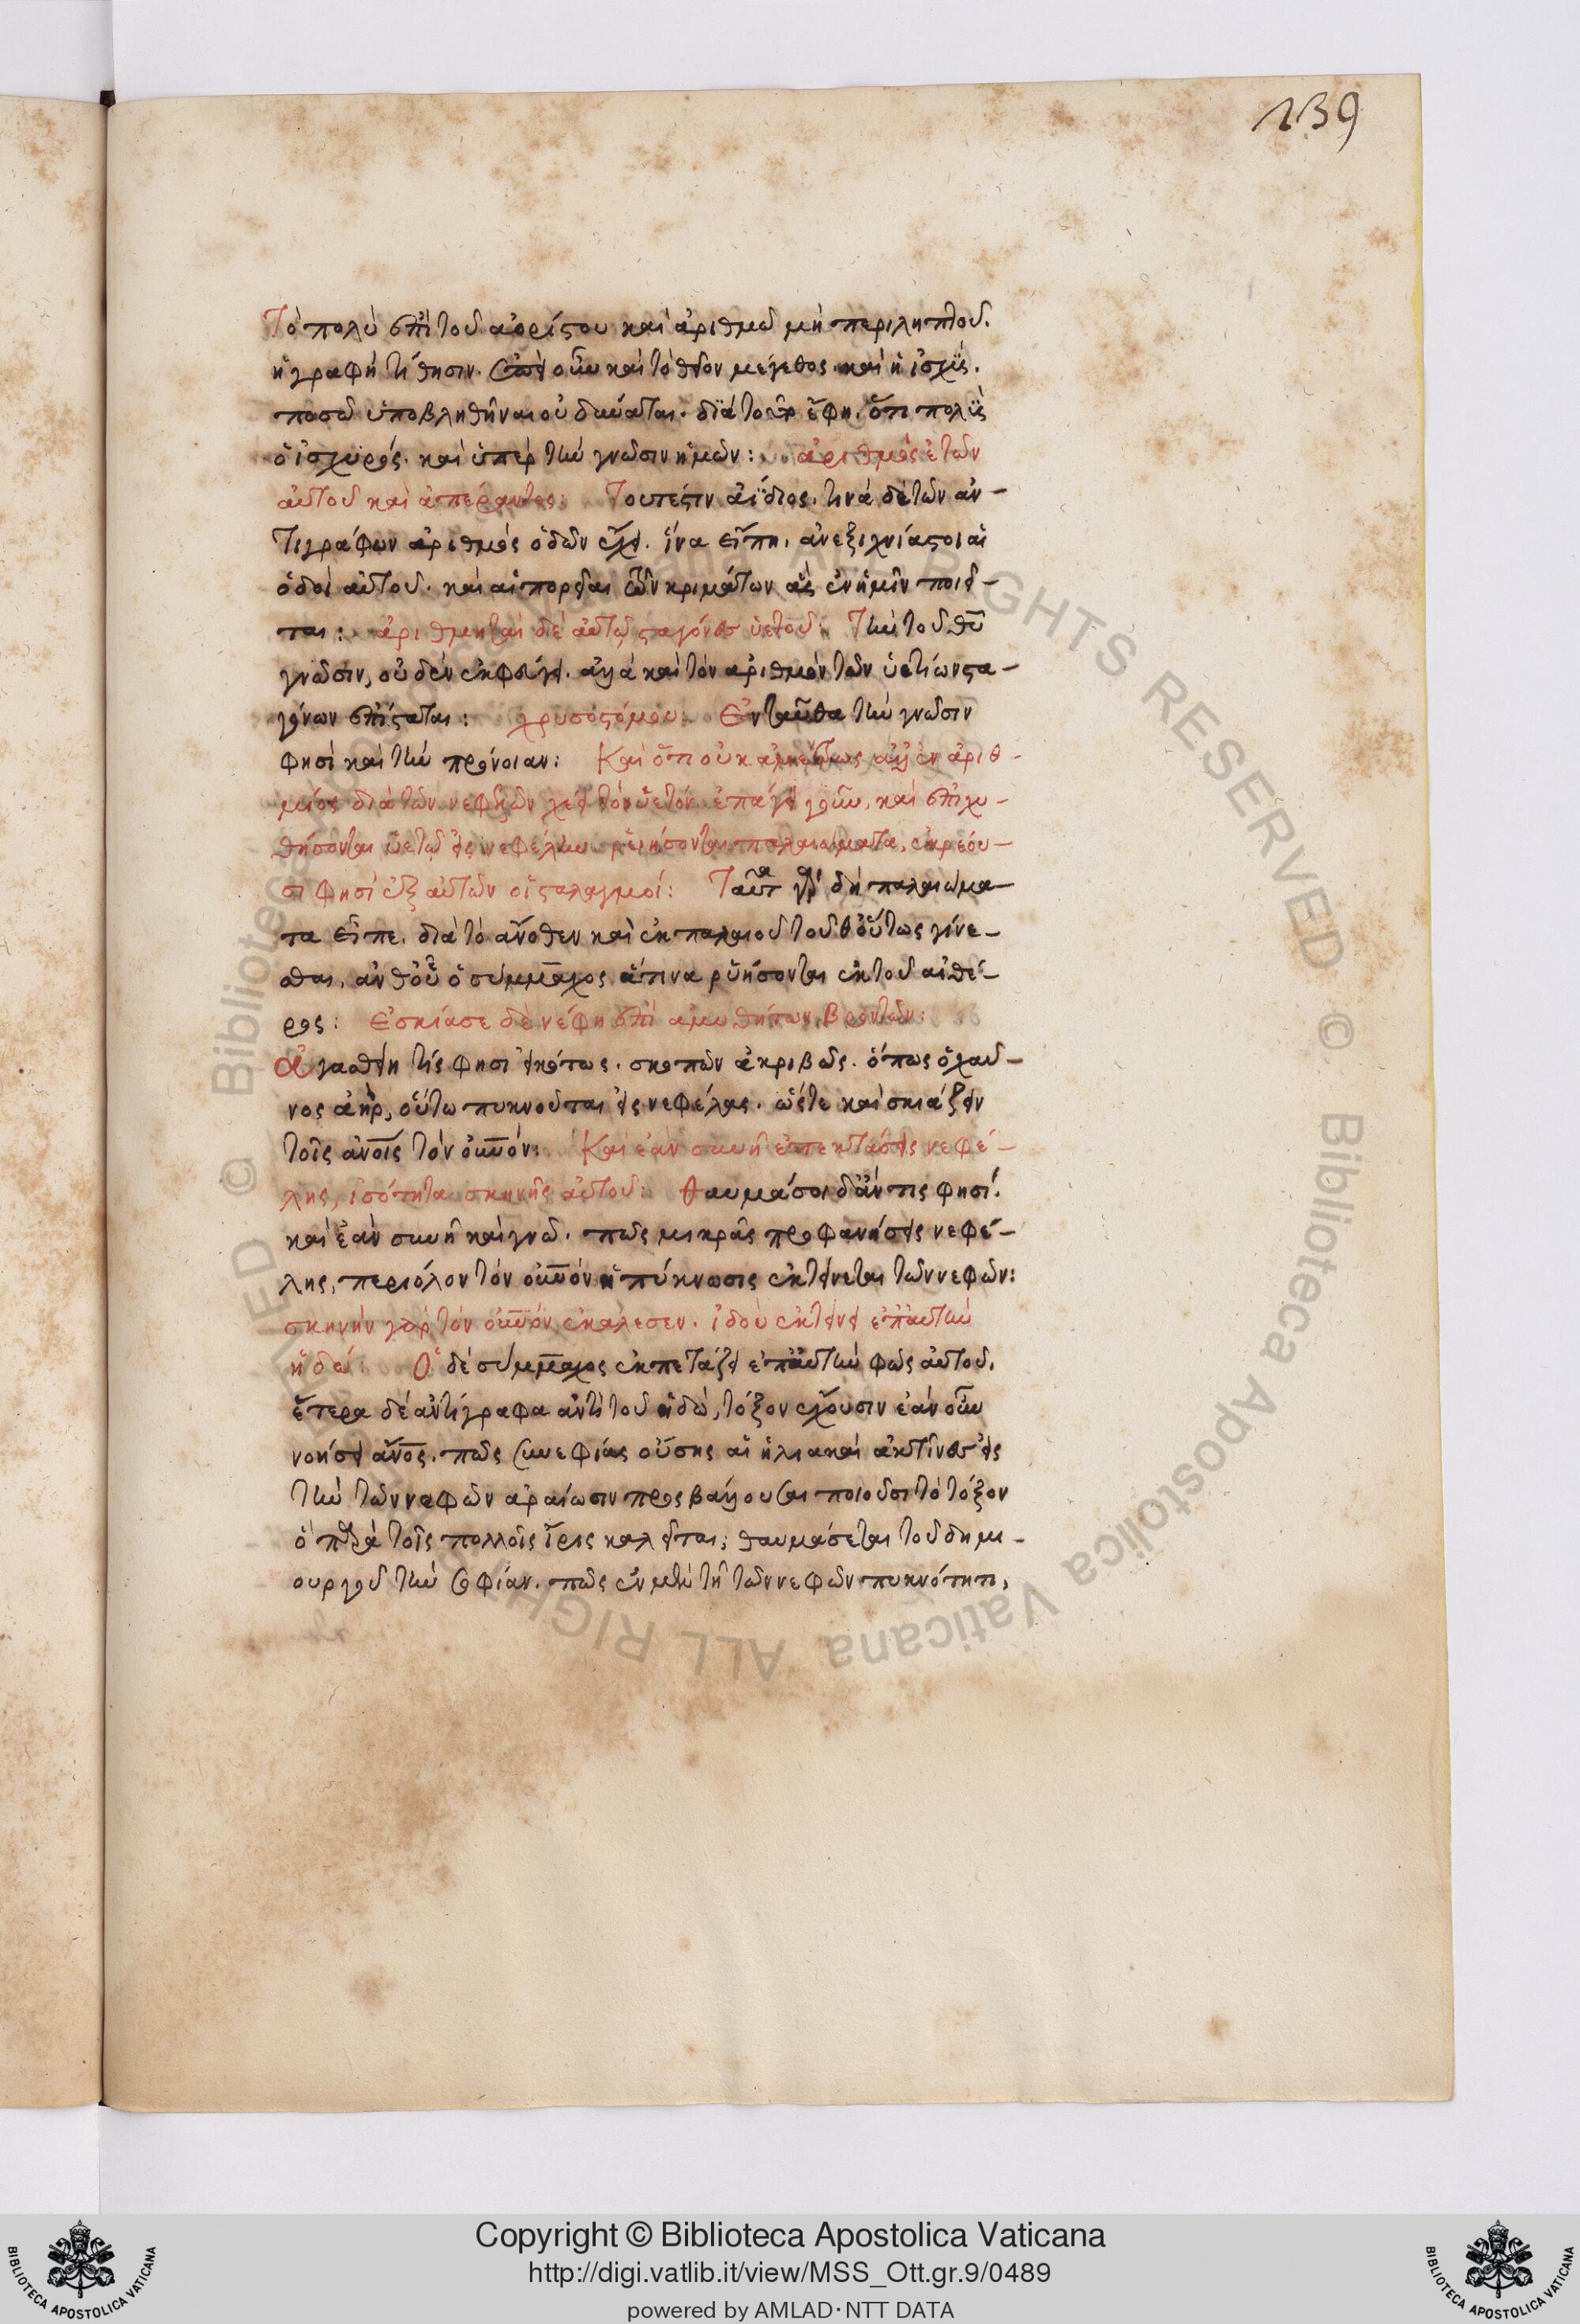 239
Τὸ πολὺ ἐπὶ τοῦ ἀορίστου καὶ ἀριθμῷ μὴ περιληπτοῦ.
ἡ γραφὴ τίθησιν. ἐπεὶ οὖν καὶ τὸ θεῖον μέγεθος καὶ ἡ ἰσχὺς.
ποσῷ ὑποβληθῆναι οὐ δύναται. διὰ τοῦτο ἔφη. ὅτι πολὺς
ὁ ἰσχυρός. καὶ ὑπὲρ τὴν γνῶσιν ἡμῶν: ἀριθμὸς ἐτῶν
αὐτοῦ καὶ ἀπέραντος: Τουτέστιν ἀΐδιος. τινὰ δὲ τῶν ἀν-
τιγράφων ἀριθμὸς ὁδῶν ἔχει. ἵνα εἴπῃ. ἀνεξιχνίαστοι αἱ
ὁδοὶ αὐτοῦ. καὶ αἱ πορεῖαι τῶν κριμάτων ἃς ἐν ἡμῖν ποιεῖ-
ται: ἀριθμηταὶ δὲ αὐτῷ σταγόνες ὑετοῦ: Τὴν τοῦ θυ
γνῶσιν, οὐδὲν ἐκφεύγει. ἀλλὰ καὶ τὸν ἀριθμὸν τῶν ὑετίων στα-
γόνων ἐπίσταται: χρυσοστόμου: Ἐνταῦθα τὴν γνῶσιν
φησὶ καὶ τὴν πρόνοιαν: Καὶ ὅτι οὐκ ἀλλ' ἐν ἀριθ-
μίοις διὰ τῶν νεφελῶν χεῖ τὸν ὑετὸν ἐπάγει γοῦν, καὶ ἐπιχυ-
θήσονται ὑετῷ εἰς νεφέλην ῥυήσονται παλαιώματα, ἐκρέου-
σι φησὶ ἐξ αὐτῶν οἱ σταλαγμοί: Ταῦτα δὴ παλαιώμα-
τα εἶπε, διὰ τὸ ἄνωθεν καὶ ἐκ παλαιοῦ τοῦθ' οὕτως γίνε-
σθαι, ἀνθ' οὗ ὁ σύμμαχος ἅτινα ῥυήσονται ἐκ τοῦ αἰθέ-
ρος: Ἐσκίασε δὲ νέφη ἐπὶ ἀμυθήτων βροντῶν:
Ἀγασθείη τίς φησι εἰκότως. σκοπῶν ἀκριβῶς. ὅπως ὁ χαῦ-
νος ἀὴρ, οὕτω πυκνοῦται εἰς νεφέλας. ὥστε καὶ σκιάζειν
τοῖς ἀνοις τὸν οὐνον: Καὶ ἐὰν συνῇ ἐπεκτάσεις νεφέ-
λης, ἰσότητα σκηνῆς αὐτοῦ: Θαυμάσοι δ' ἄν τις φησί.
καὶ ἐὰν συνῇ καὶ γνῷ. πῶς μικρᾶς προφανήσεις νεφέ-
λης, περιόλον τὸν οὐνον ἡ πύκνωσις ἐκτείνεται τῶν νεφῶν:
σκηνὴν γὰρ τὸν οὐνον ἐκάλεσεν. ἰδοὺ ἐκτείνει ἐπ' αὐτὴν
ἡδώ: Ὁ δὲ σύμμαχος ἐκπετάζει ἐπ' αὐτὴν φῶς αὐτοῦ.
ἕτερα δὲ ἀντίγραφα ἀντὶ τοῦ ἡδὼ, τόξον ἔχουσιν ἐὰν οὖν
νοήσει ἄνος. πῶς συνεφίας οὔσης αἱ ἡλιακαὶ ἀκτῖνες εἰς
τὴν τῶν νεφῶν ἀραίωσιν προσβάλλουσαι ποιοῦσι τὸ τόξον
ὁ παρὰ τοῖς πολλοῖς ἶρις καλεῖται; θαυμάσεται τοῦ δημι-
ουργοῦ τὴν σοφίαν. πῶς ἐν μὲν τῇ τῶν νεφῶν πυκνότητι,
Copyright © Biblioteca Apostolica Vaticana
http://digi.vatlib.it/view/MSS_Ott.gr.9/0489
powered by AMLAD·NTT DATA